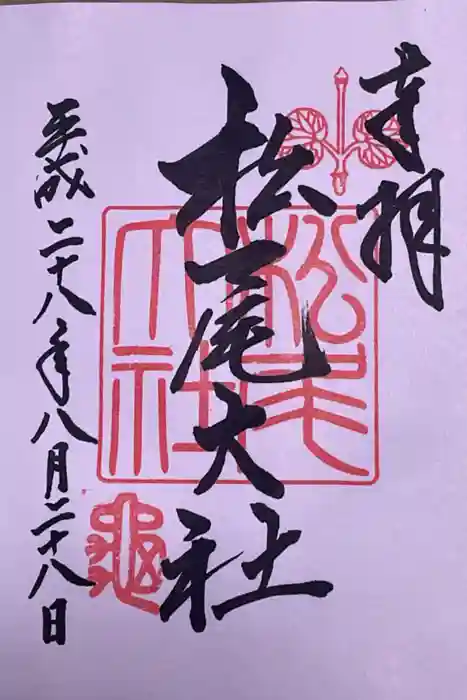 奉拝
松尾大社
松尾大社
平成二十八年八月二十八日